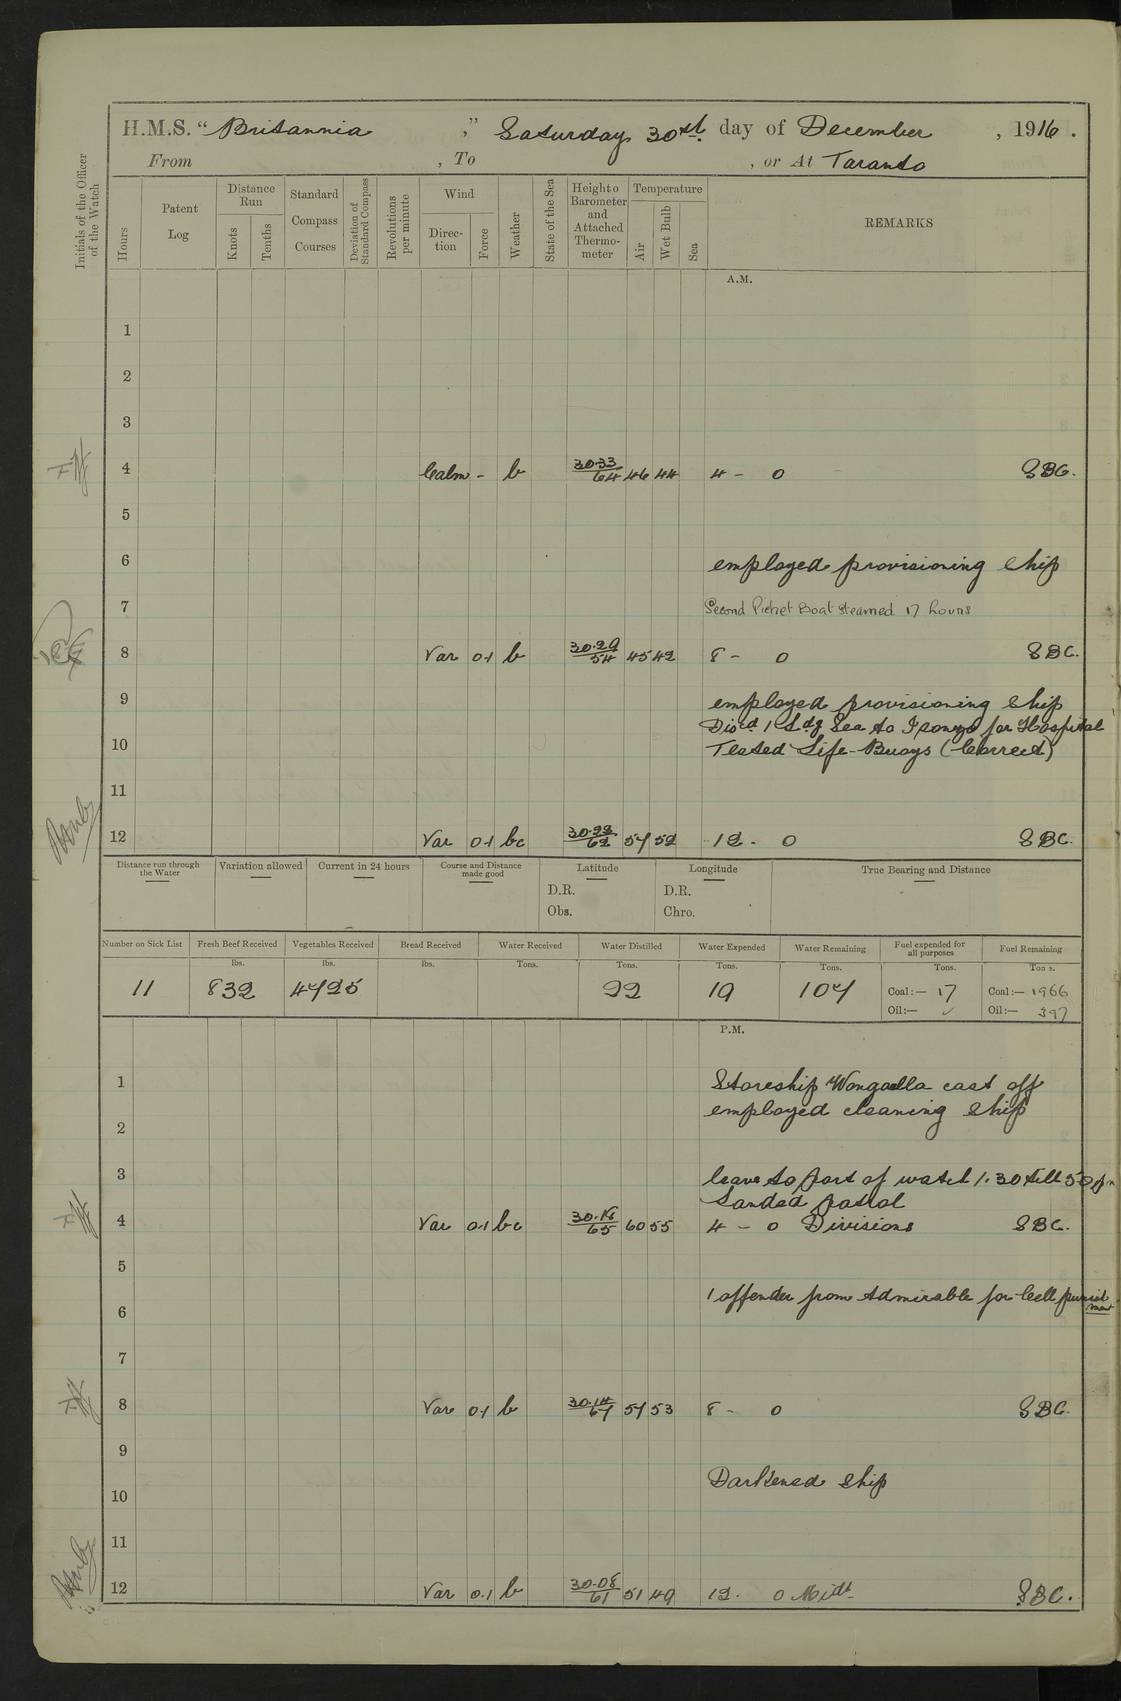 H.M.S. "Britannia," Saturday 30st. day of December, 1916.
From , To , or At Taranto
Initials of the Officer of the Watch
Hours
Patent Log
Distance Run
Knots
Tenths
Standard Compass Courses
Deviation of Standard Compass
Revolutions per minute
Wind
Direction
Force
Weather
State of the Sea
Height o Barometer and Attached Thermometer
Temperature
Air
Wet Bulb
Sea
REMARKS
A.M.
1
2
3
4 Calm - b 30.33/64 46 44 4 - 0 SBC.
5
6 employed provisioning ship
7 Second Picket Boat steamed 17 hours
8 Var 0.1 b 30.29/54 45 42 8 - 0 SBC.
9 employed provisioning ship
Disd 1 Ldg Sea to for Hospital
10 Tested Life-Buoys (Correct)
11
12 Var 0.1 bc 57 52 12. 0 SBC.
Distance run through the Water
Variation allowed
Current in 24 hours
Course and Distance made good
Latitude
D.R.
Obs.
Longitude
D.R.
Chro.
True Bearing and Distance
Number on Sick List Fresh Beef Received Vegetables Received Bread Received Water Received Water Distilled Water Expended Water Remaining Fuel expended for all purposes Fuel Remaining
lbs. lbs. lbs. Tons. Tons. Tons. Tons. Tons. Ton s.
11 832 4725 22 19 107 Coal:— 17 Coal:— 1966
Oil:— ✓ Oil:— 397
P.M.
1 Storeship Wongaella cast off
employed cleaning ship
2
3 leave to part of watch 1.30 till 5.0 pm
Landed patrol
4 Var 0.1 bc 30.18/65 60 55 4 - 0 Divisions SBC.
5
1 offender from Admirable for Cell punishment
6
7
8 Var 0.1 b 30.14/67 57 53 8 - 0 SBC.
9
Darkened ship
10
11
12 Var 0.1 b 30.08/61 51 49 12. 0 Midt. SBC.